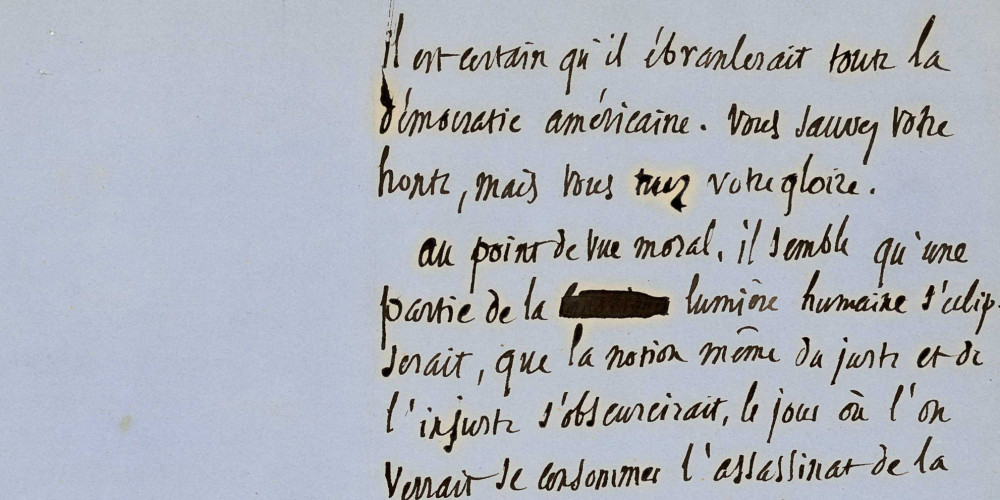 Il est certain qu'il ébranlerait toute la
démocratie américaine. Vous sauvez votre
honte, mais vous tuez votre gloire.
Au point de vue moral, il semble qu'une
partie de la lumière humaine s'éclip-
serait, que la notion même du juste et de
l'injuste s'obscurcirait, le jour où l'on
verrait se consommer l'assassinat de la